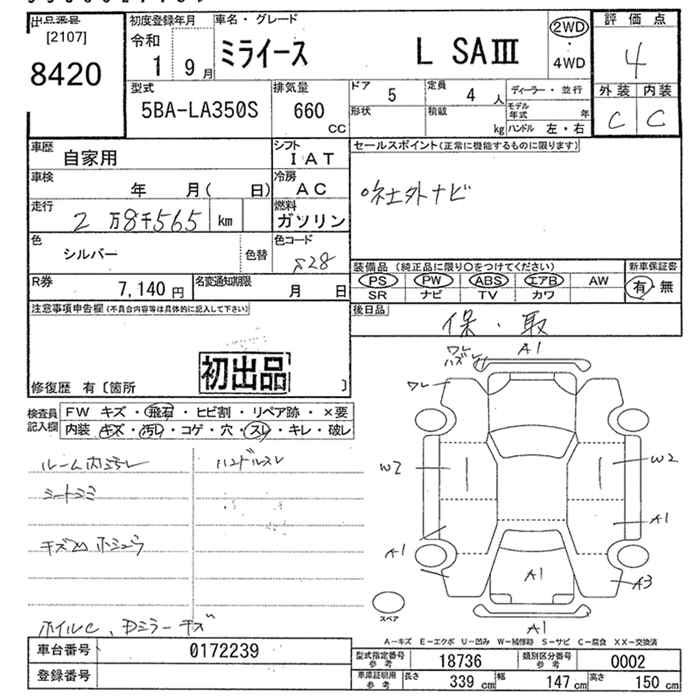 出品番号
[2107]
8420
初度登録年月
令和
1 9月
車名・グレード
ミライース L SAⅢ
2WD
・
4WD
評価点
4
外装 内装
C C
型式
5BA-LA350S
排気量
660
CC
ドア 5
定員 4 人
形状
積載 kg
ディーラー・並行
モデル年式 年
ハンドル 左・右
車歴 自家用
シフト IAT
車検 年 月( 日)
冷房 AC
走行 2万8千565 km
燃料 ガソリン
色 シルバー
色替
色コード S28
R券 7,140円
名変通知期限 月 日
セールスポイント(正常に機能するものに限ります)
社外ナビ
装備品(純正品に限り○をつけてください)
PS PW ABS エアB AW
SR ナビ TV カワ
新車保証書
有・無
後日品
保・取
注意事項申告欄(不具合内容等は具体的に記入して下さい)
初出品
修復歴 有〔箇所 〕
検査員記入欄
FW キズ・飛石・ヒビ割・リペア跡・×要
内装 キズ・汚レ・コゲ・穴・スレ・キレ・破レ
ルーム内ヨゴレ
ハンドルスレ
シートシミ
ホイルC、Dミラーキズ
ワレ
ハズレ
A1
ワレ
W2
W2
A1
A1
A1
A3
A1
スペア
A-キズ E-エクボ U-凹み W-補修跡 S-サビ C-腐食 XX-交換済
車台番号 0172239
登録番号
型式指定番号 参考 18736
類別区分番号 参考 0002
車庫証明用 参考 長さ 339cm 幅 147cm 高さ 150cm